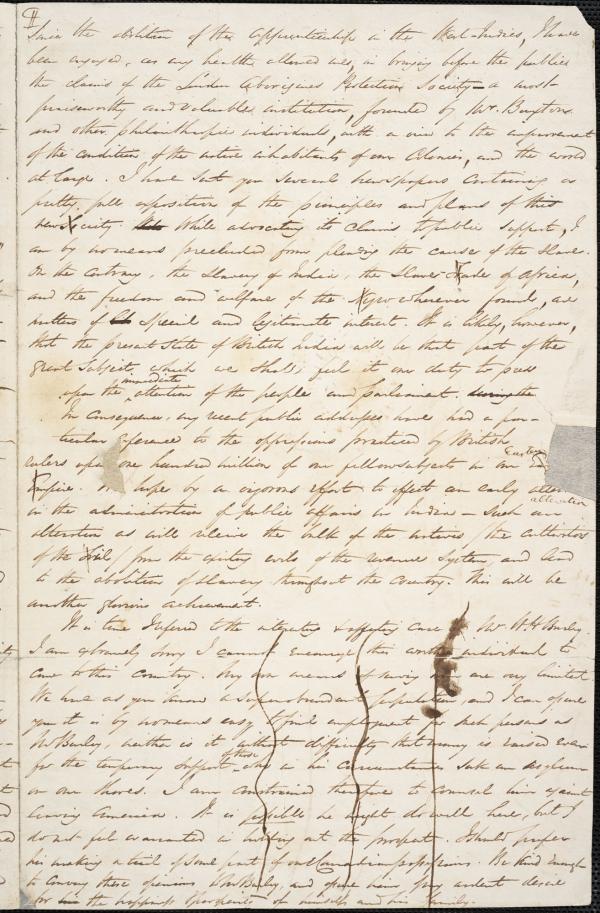 Since the abolition of the apprenticeship in the West-Indies, I have
been engaged, as my health allowed me, in bringing before the public
the claims of the London Aborigines Protection Society – a most
praiseworthy and valuable institution, founded by Mr. Buxton
and other philanthropic individuals, with a view to the improvement
of the condition of the native inhabitants of our Colonies, and the world
at large. I have sent you several newspapers containing a
pretty full exposition of the principles and plans of this
new Society. While advocating its claims to public support, I
am by no means precluded from pleading the cause of the Slave.
On the contrary, the Slavery of India, the Slave trade of Africa,
and the freedom and welfare of the Negro wherever found, are
matters of special and legitimate interest. It is likely, however,
that the present state of British India will be that part of the
great subject, which we shall feel it our duty to press
upon the immediate attention of the people and parliament.
In consequence, my recent public addresses have had a par-
ticular reference to the oppressions practiced by British
rulers upon one hundred million of our fellow subjects in our Eastern
Empire. We hope by a vigorous effort to effect an early alteration
in the administration of public affairs in India – such an
alteration as will relieve the bulk of the natives (the cultivators
of the soil) from the existing evils of the revenue system, and lead
to the abolition of slavery throughout the Country. This will be
another glorious achievement.
It is time I referred to the interesting & affecting case of Mr. W. H. Burley.
I am extremely sorry I cannot encourage this worthy individual to
come to this country. My own means of serving him are very limited.
We have as you know a superabundant population, and I can assure
you it is by no means easy to find employment for such persons as
Mr Burley, neither is it without difficulty that money is raised even
for the temporary support of those who in his circumstances seek an asylum
on our shores. I am constrained therefore to counsel him against
leaving America. It is possible he might do well here, but I
do not feel warranted in holding out the prospect. I should prefer
his making a trial of some part of our Canadian possessions. Be kind enough
to convey these opinions to Mr Burley, and assure him of my ardent desire
for the happiness & prosperity of himself and his family.